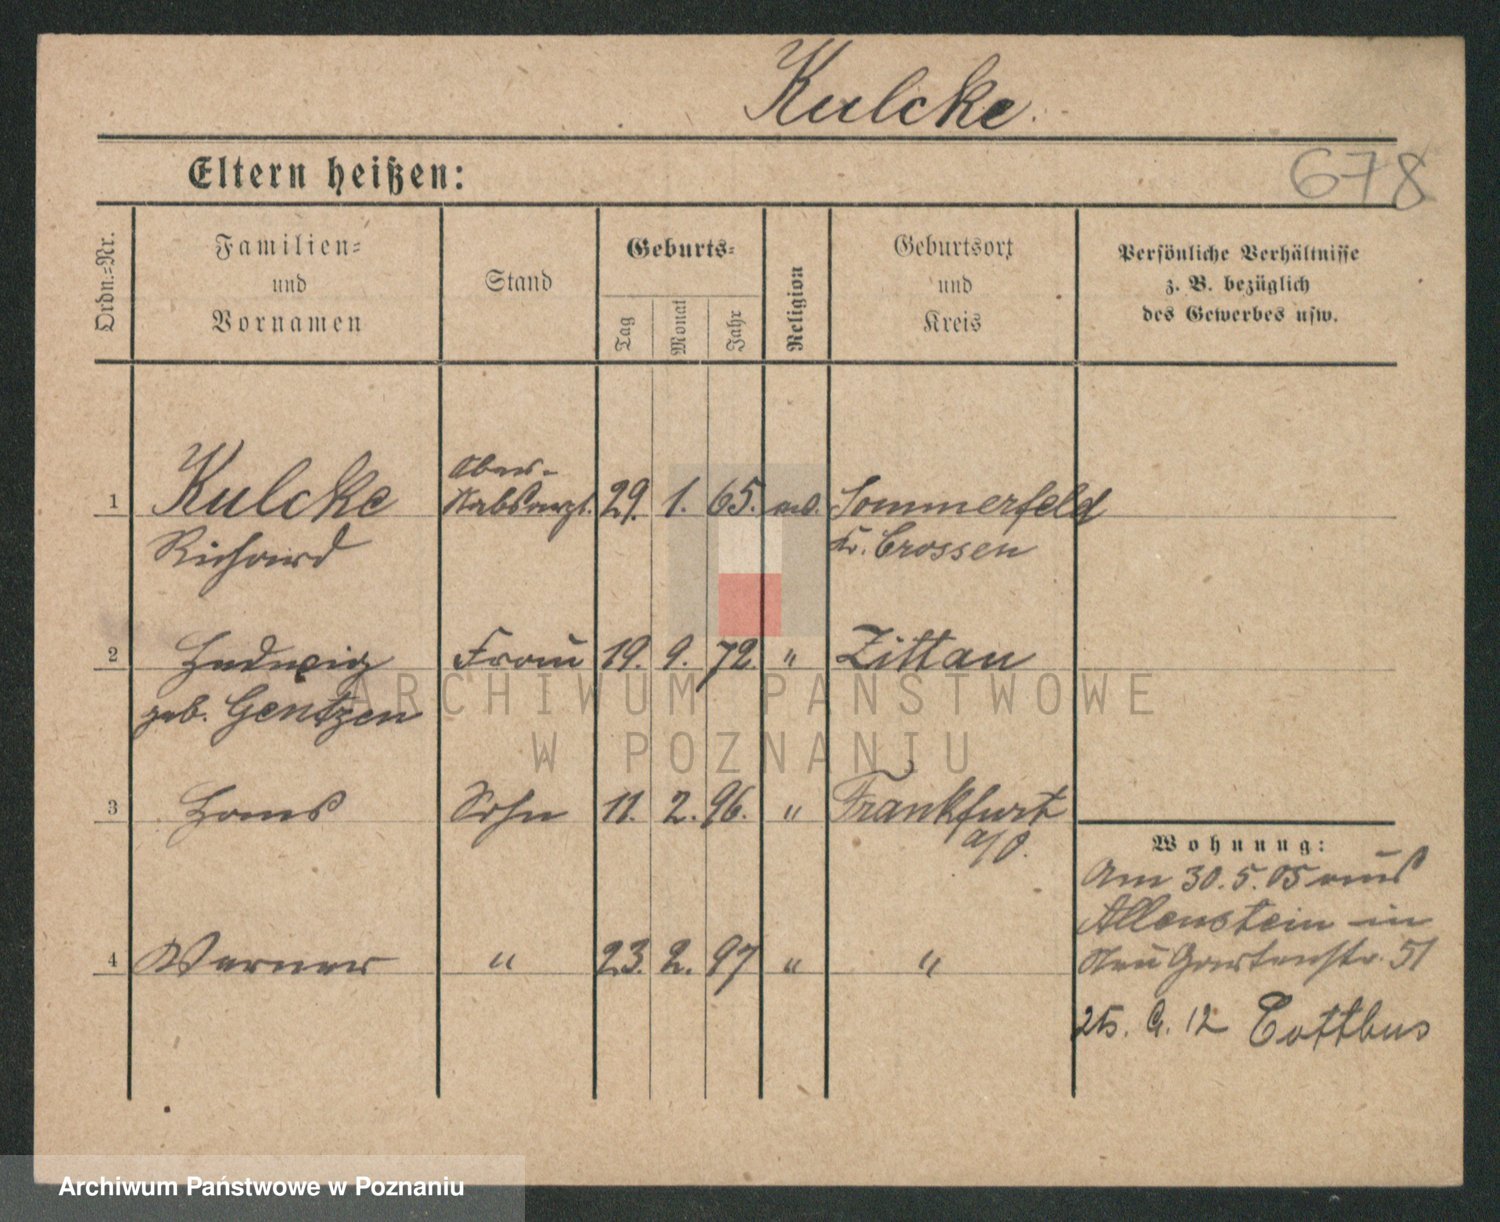 Kulcke.
Eltern heißen:
678
Ordn.=Nr.
Familien=
und
Vornamen
Stand
Geburts=
Tag
Monat
Jahr
Religion
Geburtsort
und
Kreis
Persönliche Verhältnisse
z. B. bezüglich
des Gewerbes usw.
Ober-
1 Kulcke Stabsarzt. 29. 1. 65. Sommerfeld
Richard Kr. Crossen
2 Hedwig Frau 19. 9. 72. " Zittau
geb. Gentzen
3 Hans Sohn 11. 2. 96. " Frankfurt
a/O.
4 Werner " 23. 2. 97 " "
Wohnung:
Am 30. 5. 05 aus
Allenstein in
Neu Gartenstr. 51
12 Cottbus
ARCHIWUM PAŃSTWOWE
W POZNANIU
Archiwum Państwowe w Poznaniu